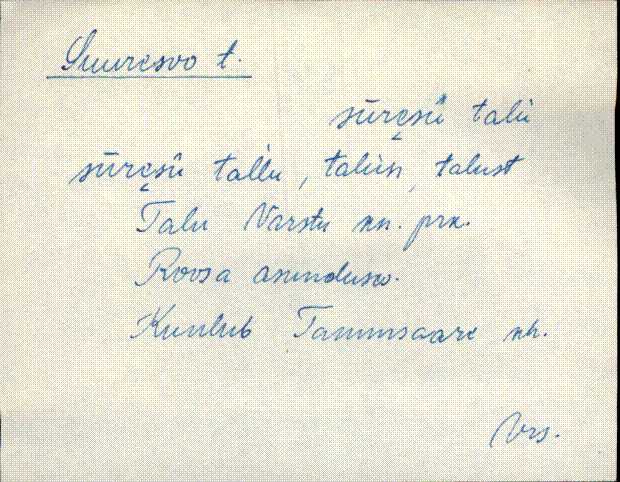 Suuresoo t.
sūre̬sū̀ talu
sūre̬sū̀ tallu, talun, talust
Talu Varstu kn. prk.
Roosa asunduses.
Kuulub Tammsaare kh.
Vrs.